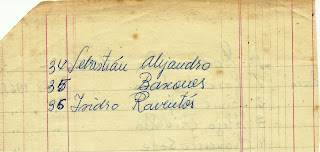 34 Sebistián Alejandro
35 Banoues
36 Isidro Raviutós